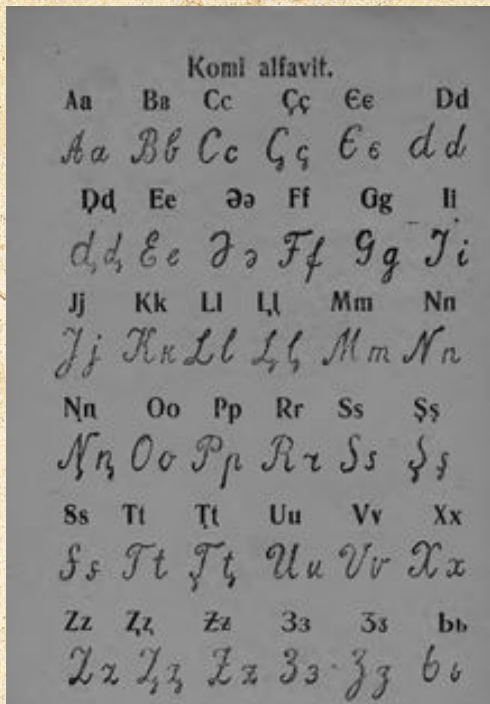 Komi alfavit.
Aa Bʙ Cc Çç Єє Dd
Aa Bb Cc Çç Єє Dd
D̦d̦ Ee Əə Ff Gg Ii
D̦d̦ Ee Əə Ff Gg Ii
Jj Kk Ll Ļļ Mm Nn
Jj Kk Ll Ļļ Mm Nn
Ņņ Oo Pp Rr Ss Şş
Ņņ Oo Pp Rr Ss Şş
Ss Tt Ţţ Uu Vv Xx
Ss Tt Ţţ Uu Vv Xx
Zz Z̦z̦ Ƶƶ Зз Ʒʒ Ьь
Zz Z̦z̦ Ƶƶ Зз Ʒʒ Ьь